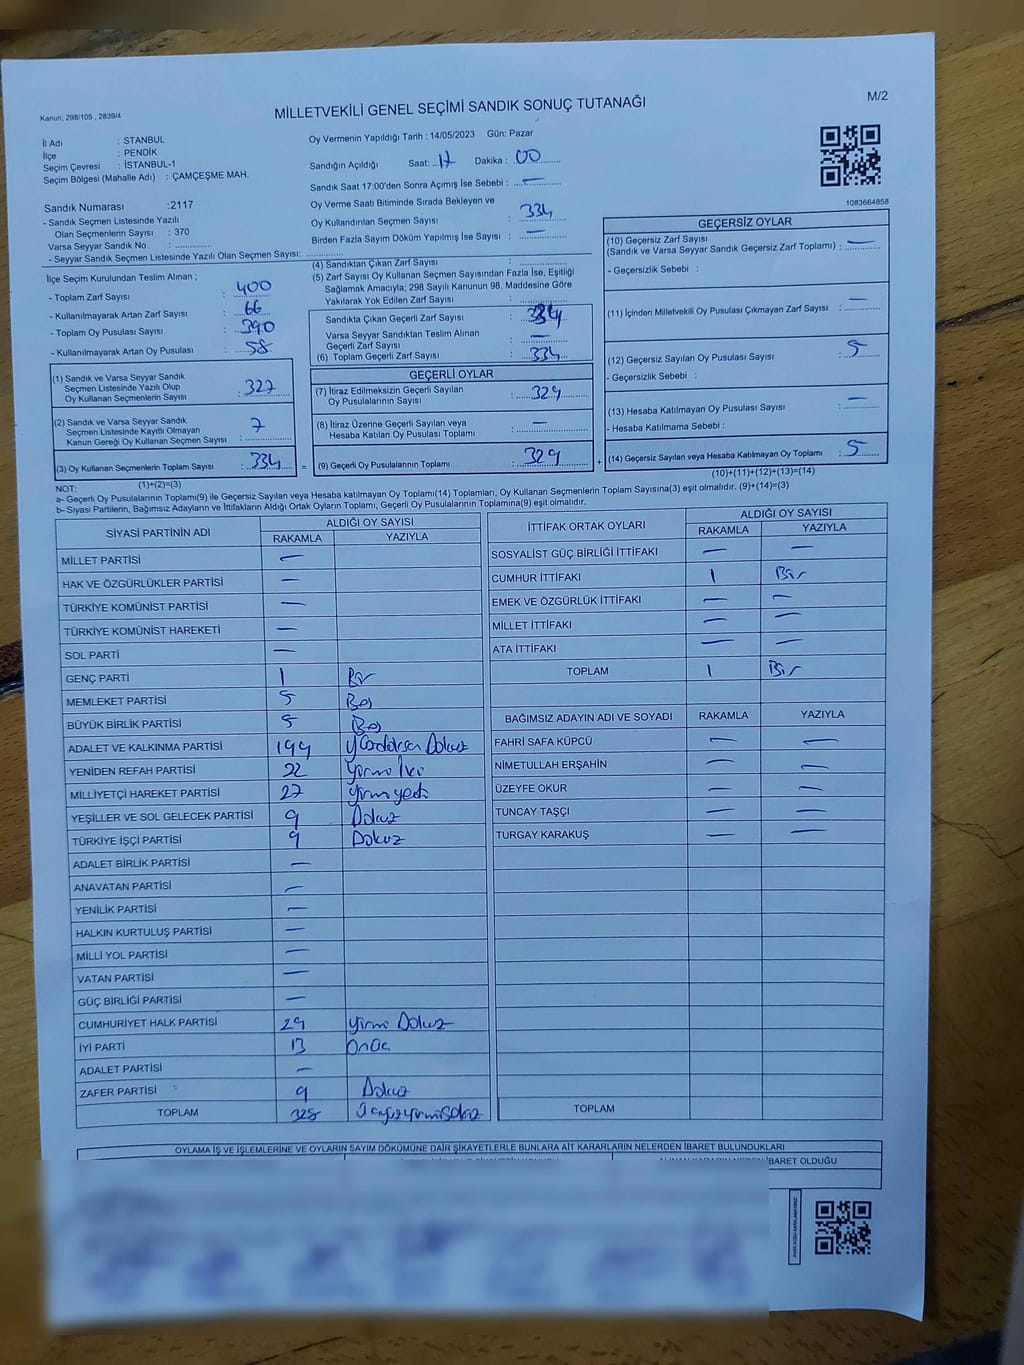 Kanun, 298/105 , 2839/4
MİLLETVEKİLİ GENEL SEÇİMİ SANDIK SONUÇ TUTANAĞI
M/2
İl Adı : STANBUL
İlçe : PENDİK
Seçim Çevresi : İSTANBUL-1
Seçim Bölgesi (Mahalle Adı) : ÇAMÇEŞME MAH.
Oy Vermenin Yapıldığı Tarih : 14/05/2023 Gün: Pazar
Sandığın Açıldığı Saat: 17 Dakika : 00
Sandık Saat 17:00'den Sonra Açılmış İse Sebebi : —
Oy Verme Saati Bitiminde Sırada Bekleyen ve
Oy Kullandırılan Seçmen Sayısı : 334
Birden Fazla Sayım Döküm Yapılmış İse Sayısı : —
1083664858
Sandık Numarası :2117
- Sandık Seçmen Listesinde Yazılı
Olan Seçmenlerin Sayısı : 370
Varsa Seyyar Sandık No :
- Seyyar Sandık Seçmen Listesinde Yazılı Olan Seçmen Sayısı:
İlçe Seçim Kurulundan Teslim Alınan ;
- Toplam Zarf Sayısı : 400
- Kullanılmayarak Artan Zarf Sayısı : 66
- Toplam Oy Pusulası Sayısı : 390
- Kullanılmayarak Artan Oy Pusulası : 58
(1) Sandık ve Varsa Seyyar Sandık
Seçmen Listesinde Yazılı Olup
Oy Kullanan Seçmenlerin Sayısı : 327
(2) Sandık ve Varsa Seyyar Sandık
Seçmen Listesinde Kayıtlı Olmayan
Kanun Gereği Oy Kullanan Seçmen Sayısı : 7
(3) Oy Kullanan Seçmenlerin Toplam Sayısı : 334
(1)+(2)=(3)
(4) Sandıktan Çıkan Zarf Sayısı :
(5) Zarf Sayısı Oy Kullanan Seçmen Sayısından Fazla İse, Eşitliği
Sağlamak Amacıyla; 298 Sayılı Kanunun 98. Maddesine Göre
Yakılarak Yok Edilen Zarf Sayısı :
Sandıkta Çıkan Geçerli Zarf Sayısı : 334
Varsa Seyyar Sandıktan Teslim Alınan
Geçerli Zarf Sayısı : —
(6) Toplam Geçerli Zarf Sayısı : 334
GEÇERLİ OYLAR
(7) İtiraz Edilmeksizin Geçerli Sayılan
Oy Pusulalarının Sayısı : 329
(8) İtiraz Üzerine Geçerli Sayılan veya
Hesaba Katılan Oy Pusulası Toplamı : —
= (9) Geçerli Oy Pusulalarının Toplamı : 329 +
GEÇERSİZ OYLAR
(10) Geçersiz Zarf Sayısı
(Sandık ve Varsa Seyyar Sandık Geçersiz Zarf Toplamı) : —
- Geçersizlik Sebebi :
(11) İçinden Milletvekili Oy Pusulası Çıkmayan Zarf Sayısı : —
(12) Geçersiz Sayılan Oy Pusulası Sayısı : 5
- Geçersizlik Sebebi :
(13) Hesaba Katılmayan Oy Pusulası Sayısı : —
- Hesaba Katılmama Sebebi :
(14) Geçersiz Sayılan veya Hesaba Katılmayan Oy Toplamı : 5
(10)+(11)+(12)+(13)=(14)
NOT:
a- Geçerli Oy Pusulalarının Toplamı(9) ile Geçersiz Sayılan veya Hesaba katılmayan Oy Toplamı(14) Toplamları, Oy Kullanan Seçmenlerin Toplam Sayısına(3) eşit olmalıdır. (9)+(14)=(3)
b- Siyasi Partilerin, Bağımsız Adayların ve İttifakların Aldığı Ortak Oyların Toplamı, Geçerli Oy Pusulalarının Toplamına(9) eşit olmalıdır.
SİYASİ PARTİNİN ADI ALDIĞI OY SAYISI
RAKAMLA YAZIYLA
MİLLET PARTİSİ —
HAK VE ÖZGÜRLÜKLER PARTİSİ —
TÜRKİYE KOMÜNİST PARTİSİ —
TÜRKİYE KOMÜNİST HAREKETİ —
SOL PARTİ —
GENÇ PARTİ 1 Bir
MEMLEKET PARTİSİ 5 Beş
BÜYÜK BİRLİK PARTİSİ 5 Beş
ADALET VE KALKINMA PARTİSİ 199 Yüzdoksan Dokuz
YENİDEN REFAH PARTİSİ 22 Yirmi İki
MİLLİYETÇİ HAREKET PARTİSİ 27 Yirmiyedi
YEŞİLLER VE SOL GELECEK PARTİSİ 9 Dokuz
TÜRKİYE İŞÇİ PARTİSİ 9 Dokuz
ADALET BİRLİK PARTİSİ —
ANAVATAN PARTİSİ —
YENİLİK PARTİSİ —
HALKIN KURTULUŞ PARTİSİ —
MİLLİ YOL PARTİSİ —
VATAN PARTİSİ —
GÜÇ BİRLİĞİ PARTİSİ —
CUMHURİYET HALK PARTİSİ 29 Yirmi Dokuz
İYİ PARTİ 13 Onüç
ADALET PARTİSİ —
ZAFER PARTİSİ 9 Dokuz
TOPLAM 328 Üçyüzyirmisekiz
İTTİFAK ORTAK OYLARI ALDIĞI OY SAYISI
RAKAMLA YAZIYLA
SOSYALİST GÜÇ BİRLİĞİ İTTİFAKI — —
CUMHUR İTTİFAKI 1 Bir
EMEK VE ÖZGÜRLÜK İTTİFAKI — —
MİLLET İTTİFAKI — —
ATA İTTİFAKI — —
TOPLAM 1 Bir
BAĞIMSIZ ADAYIN ADI VE SOYADI RAKAMLA YAZIYLA
FAHRİ SAFA KÜPCÜ — —
NİMETULLAH ERŞAHİN — —
ÜZEYFE OKUR — —
TUNCAY TAŞÇI — —
TURGAY KARAKUŞ — —
TOPLAM
OYLAMA İŞ VE İŞLEMLERİNE VE OYLARIN SAYIM DÖKÜMÜNE DAİR ŞİKAYETLERLE BUNLARA AİT KARARLARIN NELERDEN İBARET BULUNDUKLARI
İBARET OLDUĞU